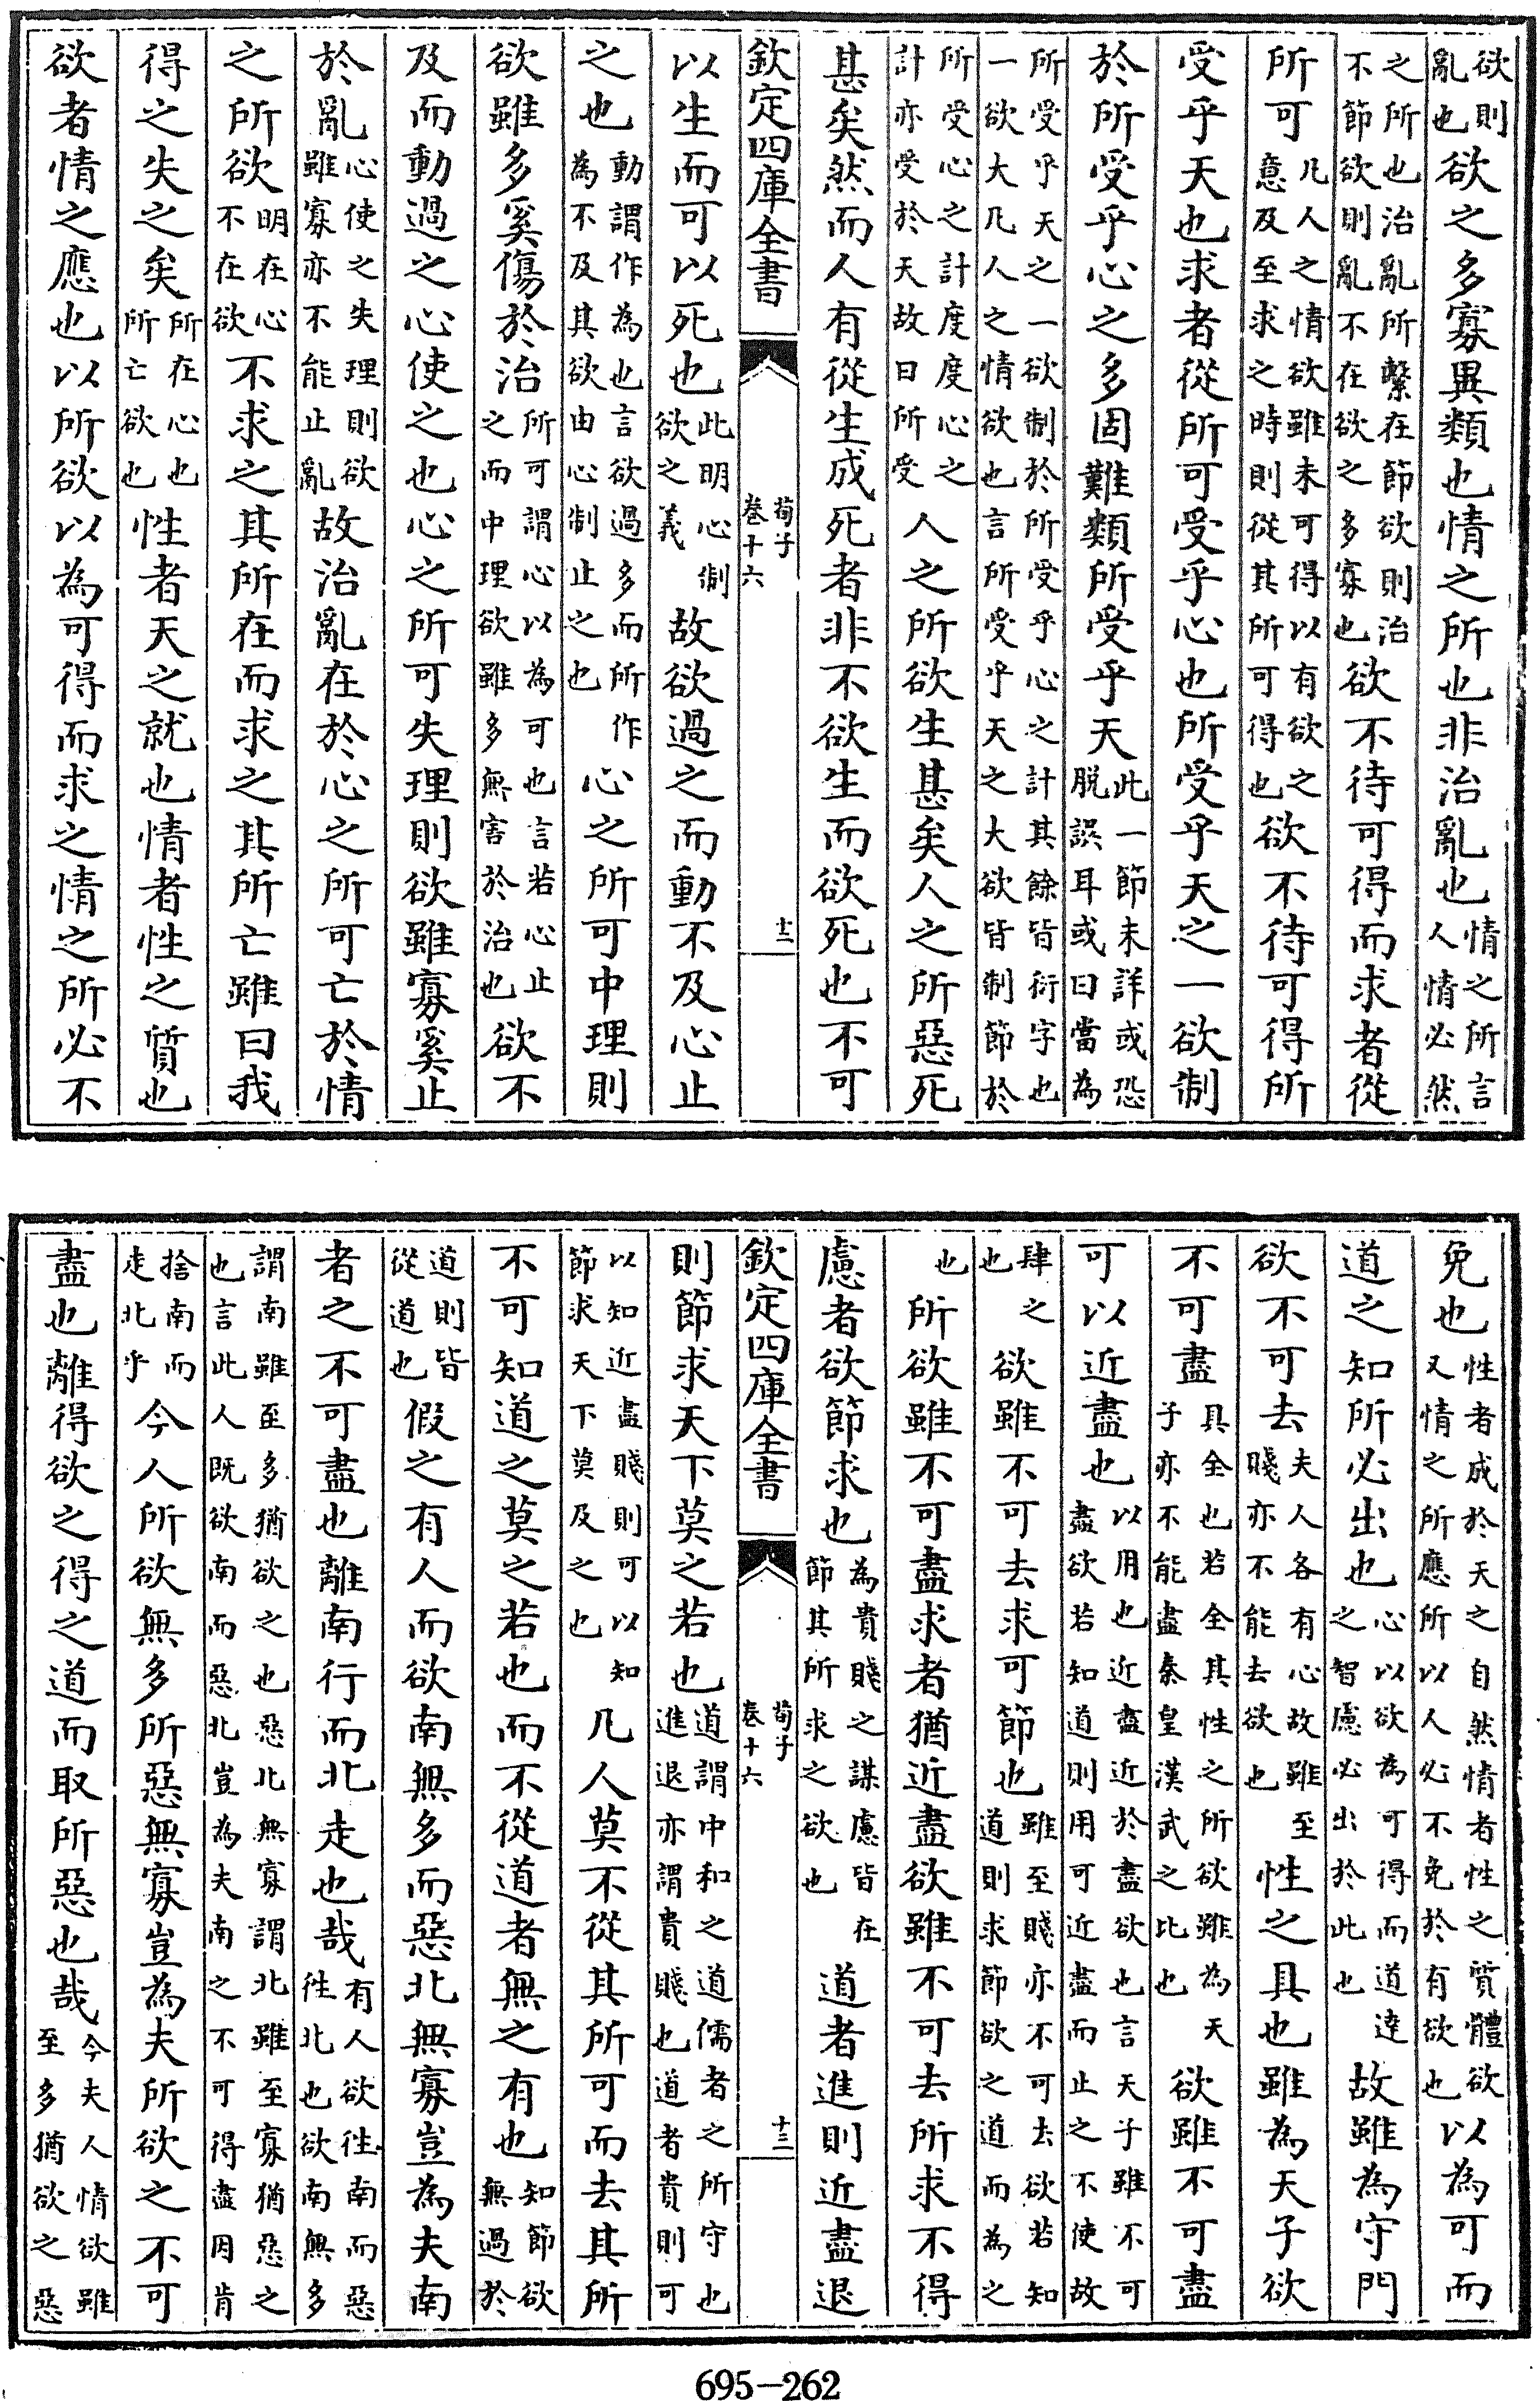 欲則亂也欲之多寡異類也情之所也非治亂也情之所言人情必然
之所也治亂所繫在節欲則治不節欲則亂不在欲之多寡也欲不待可得而求者從
所可凡人之情欲雖未可得以有欲之意及至求之時則從其所可得也欲不待可得所
受乎天也求者從所可受乎心也所受乎天之一欲制
於所受乎心之多固難類所受乎天此一節未詳或恐脱誤耳或曰當為
所受乎天之一欲制於所受乎心之計其餘皆衍字也一欲大凡人之情欲也言所受乎天之大欲皆制節於
所受心之計度度心之計亦受於天故曰所受人之所欲生甚矣人之所惡死
甚矣然而人有從生成死者非不欲生而欲死也不可
欽定四庫全書 荀子 卷十六 十二
以生而可以死也此明心制欲之義故欲過之而動不及心止
之也動謂作為也言欲過多而所作為不及其欲由心制止之也心之所可中理則
欲雖多奚傷於治所可謂心以為可也言若心止之而中理欲雖多無害於治也欲不
及而動過之心使之也心之所可失理則欲雖寡奚止
於亂心使之失理則欲雖寡亦不能止亂故治亂在於心之所可亡於情
之所欲明在心不在欲不求之其所在而求之其所亡雖曰我
得之失之矣所在心也所亡欲也性者天之就也情者性之質也
欲者情之應也以所欲以為可得而求之情之所必不
免也性者成於天之自然情者性之質體欲又情之所應所以人必不免於有欲也以為可而
道之知所必出也心以欲為可得而道達之智慮必出於此也故雖為守門
欲不可去夫人各有心故雖至賤亦不能去欲也性之具也雖為天子欲
不可盡具全也若全其性之所欲雖為天子亦不能盡秦皇漢武之比也欲雖不可盡
可以近盡也以用也近盡近於盡欲也言天子雖不可盡欲若知道則用可近盡而止之不使故
肆之也欲雖不可去求可節也雖至賤亦不可去欲若知道則求節欲之道而為之
也所欲雖不可盡求者猶近盡欲雖不可去所求不得
慮者欲節求也為貴賤之謀慮皆在節其所求之欲也道者進則近盡退
欽定四庫全書 荀子 卷十六 十三
則節求天下莫之若也道謂中和之道儒者之所守也進退亦謂貴賤也道者貴則可
以知近盡賤則可以知節求天下莫及之也凡人莫不從其所可而去其所
不可知道之莫之若也而不從道者無之有也知節欲無過於
道則皆從道也假之有人而欲南無多而惡北無寡豈為夫南
者之不可盡也離南行而北走也哉有人欲往南而惡往北也欲南無多
謂南雖至多猶欲之也惡北無寡謂北雖至寡猶惡之也言此人既欲南而惡北豈為夫南之不可得盡因肯
捨南而走北乎今人所欲無多所惡無寡豈為夫所欲之不可
盡也離得欲之得之道而取所惡也哉今夫人情欲雖至多猶欲之惡
695-262